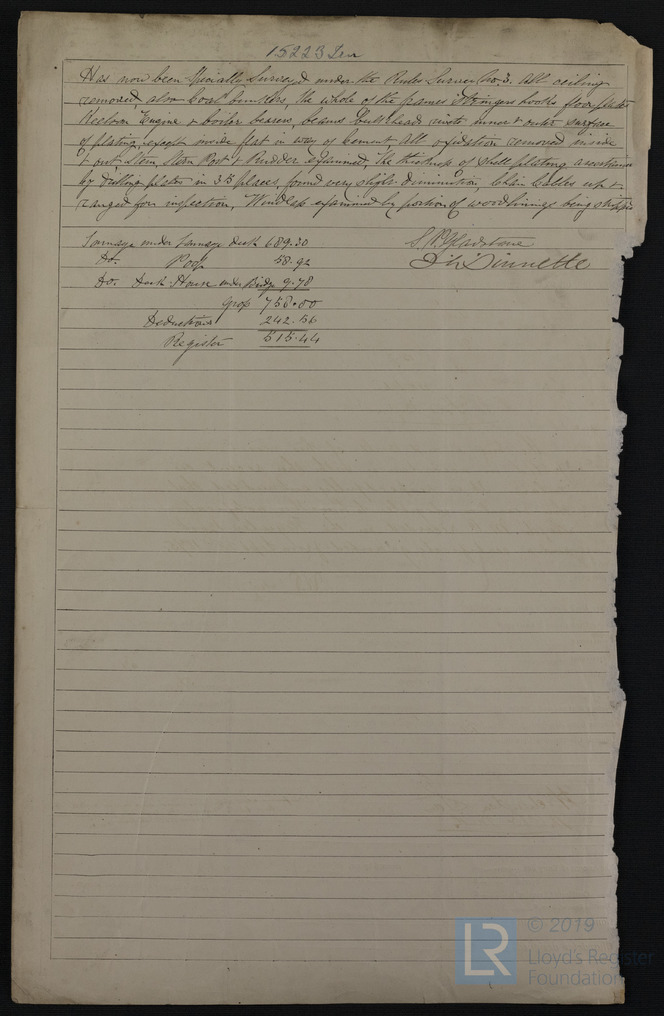 15223 Iron
Has now been Specially Surveyed under the Rules Survey No. 3. All ceiling
removed, also Coal bunkers, the whole of the frames Stringers hooks floorplates
Keelson Engine & boiler bearers, beams bulkhead rivets inner & outer surface
of plating except inside flat in way of Cement, all oxidation removed inside
& out, Stem, Stern Post & Rudder examined, The thickness of shell plating ascertained
by drilling plates in 38 places, found very slight diminution, Chain Cables up &
ranged for inspection, Windlass examined by portion of wood linings being stripped
Tonnage under Tonnage deck 689.30
Do. Poop 58.92
Do. Deck House under Bridge 9.78
Gross 758.00
Deductions 242.56
Register 515.44
J. H. Dinnette
LR
© 2019
Lloyd's Register
Foundation